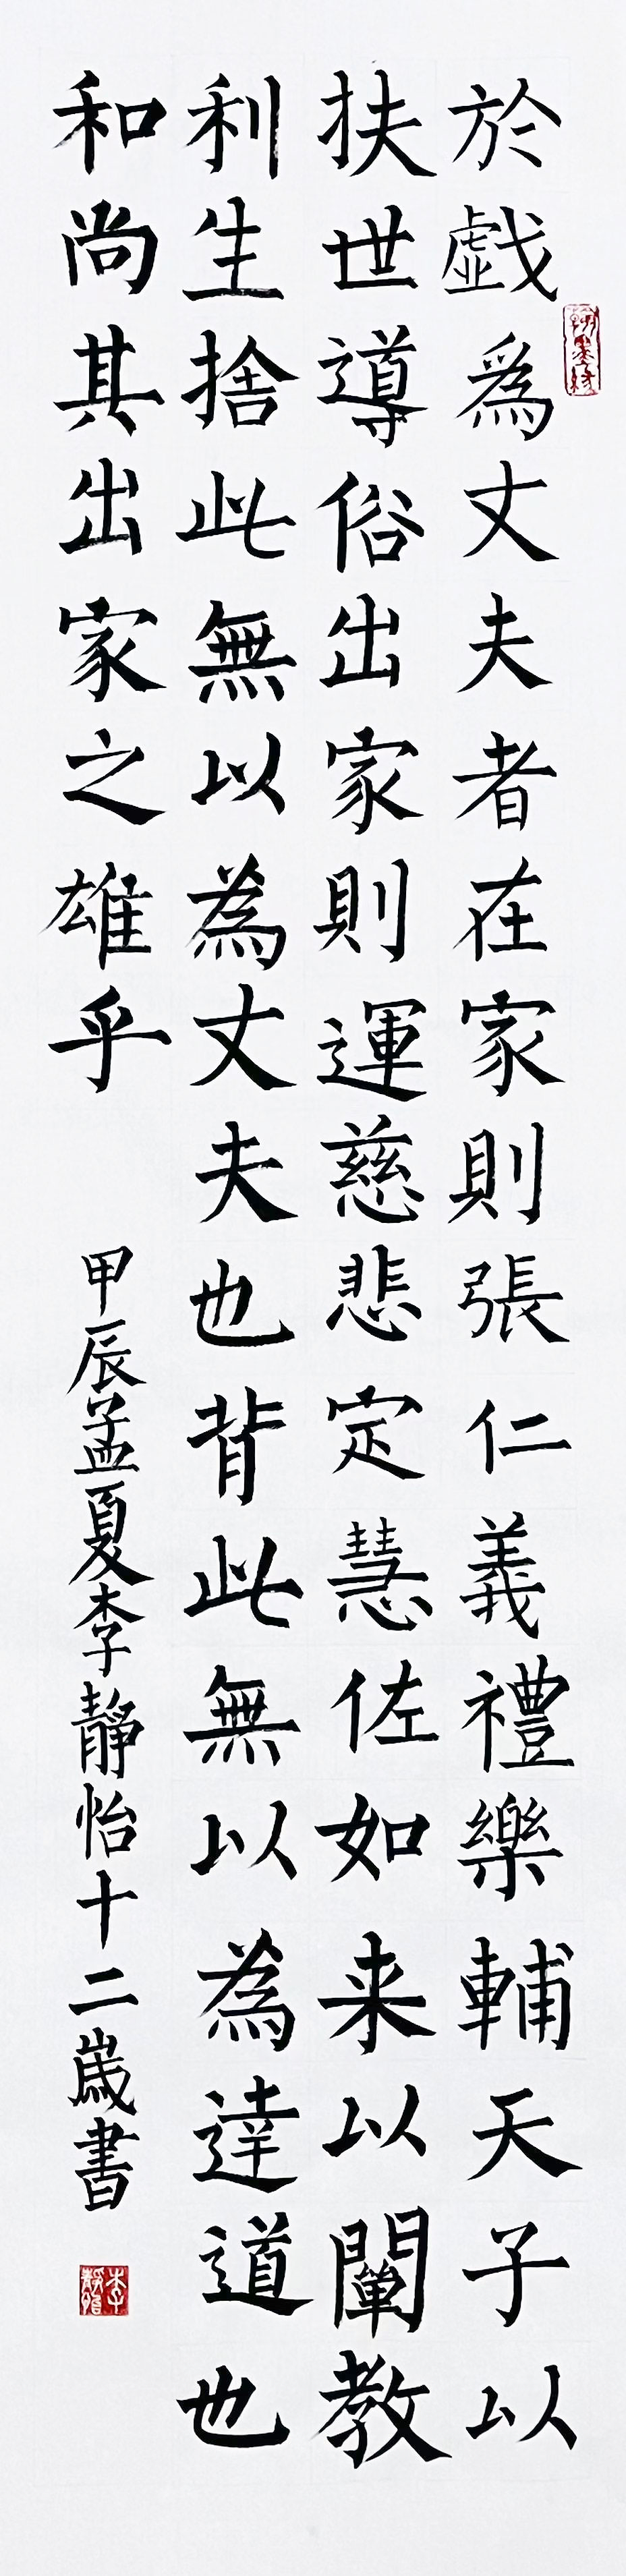 於戲爲丈夫者在家則張仁義禮樂輔天子以
扶世導俗出家則運慈悲定慧佐如来以闡教
利生捨此無以為丈夫也背此無以為達道也
和尚其出家之雄乎
甲辰孟夏李靜怡十二歲書
翰墨緣
李靜怡